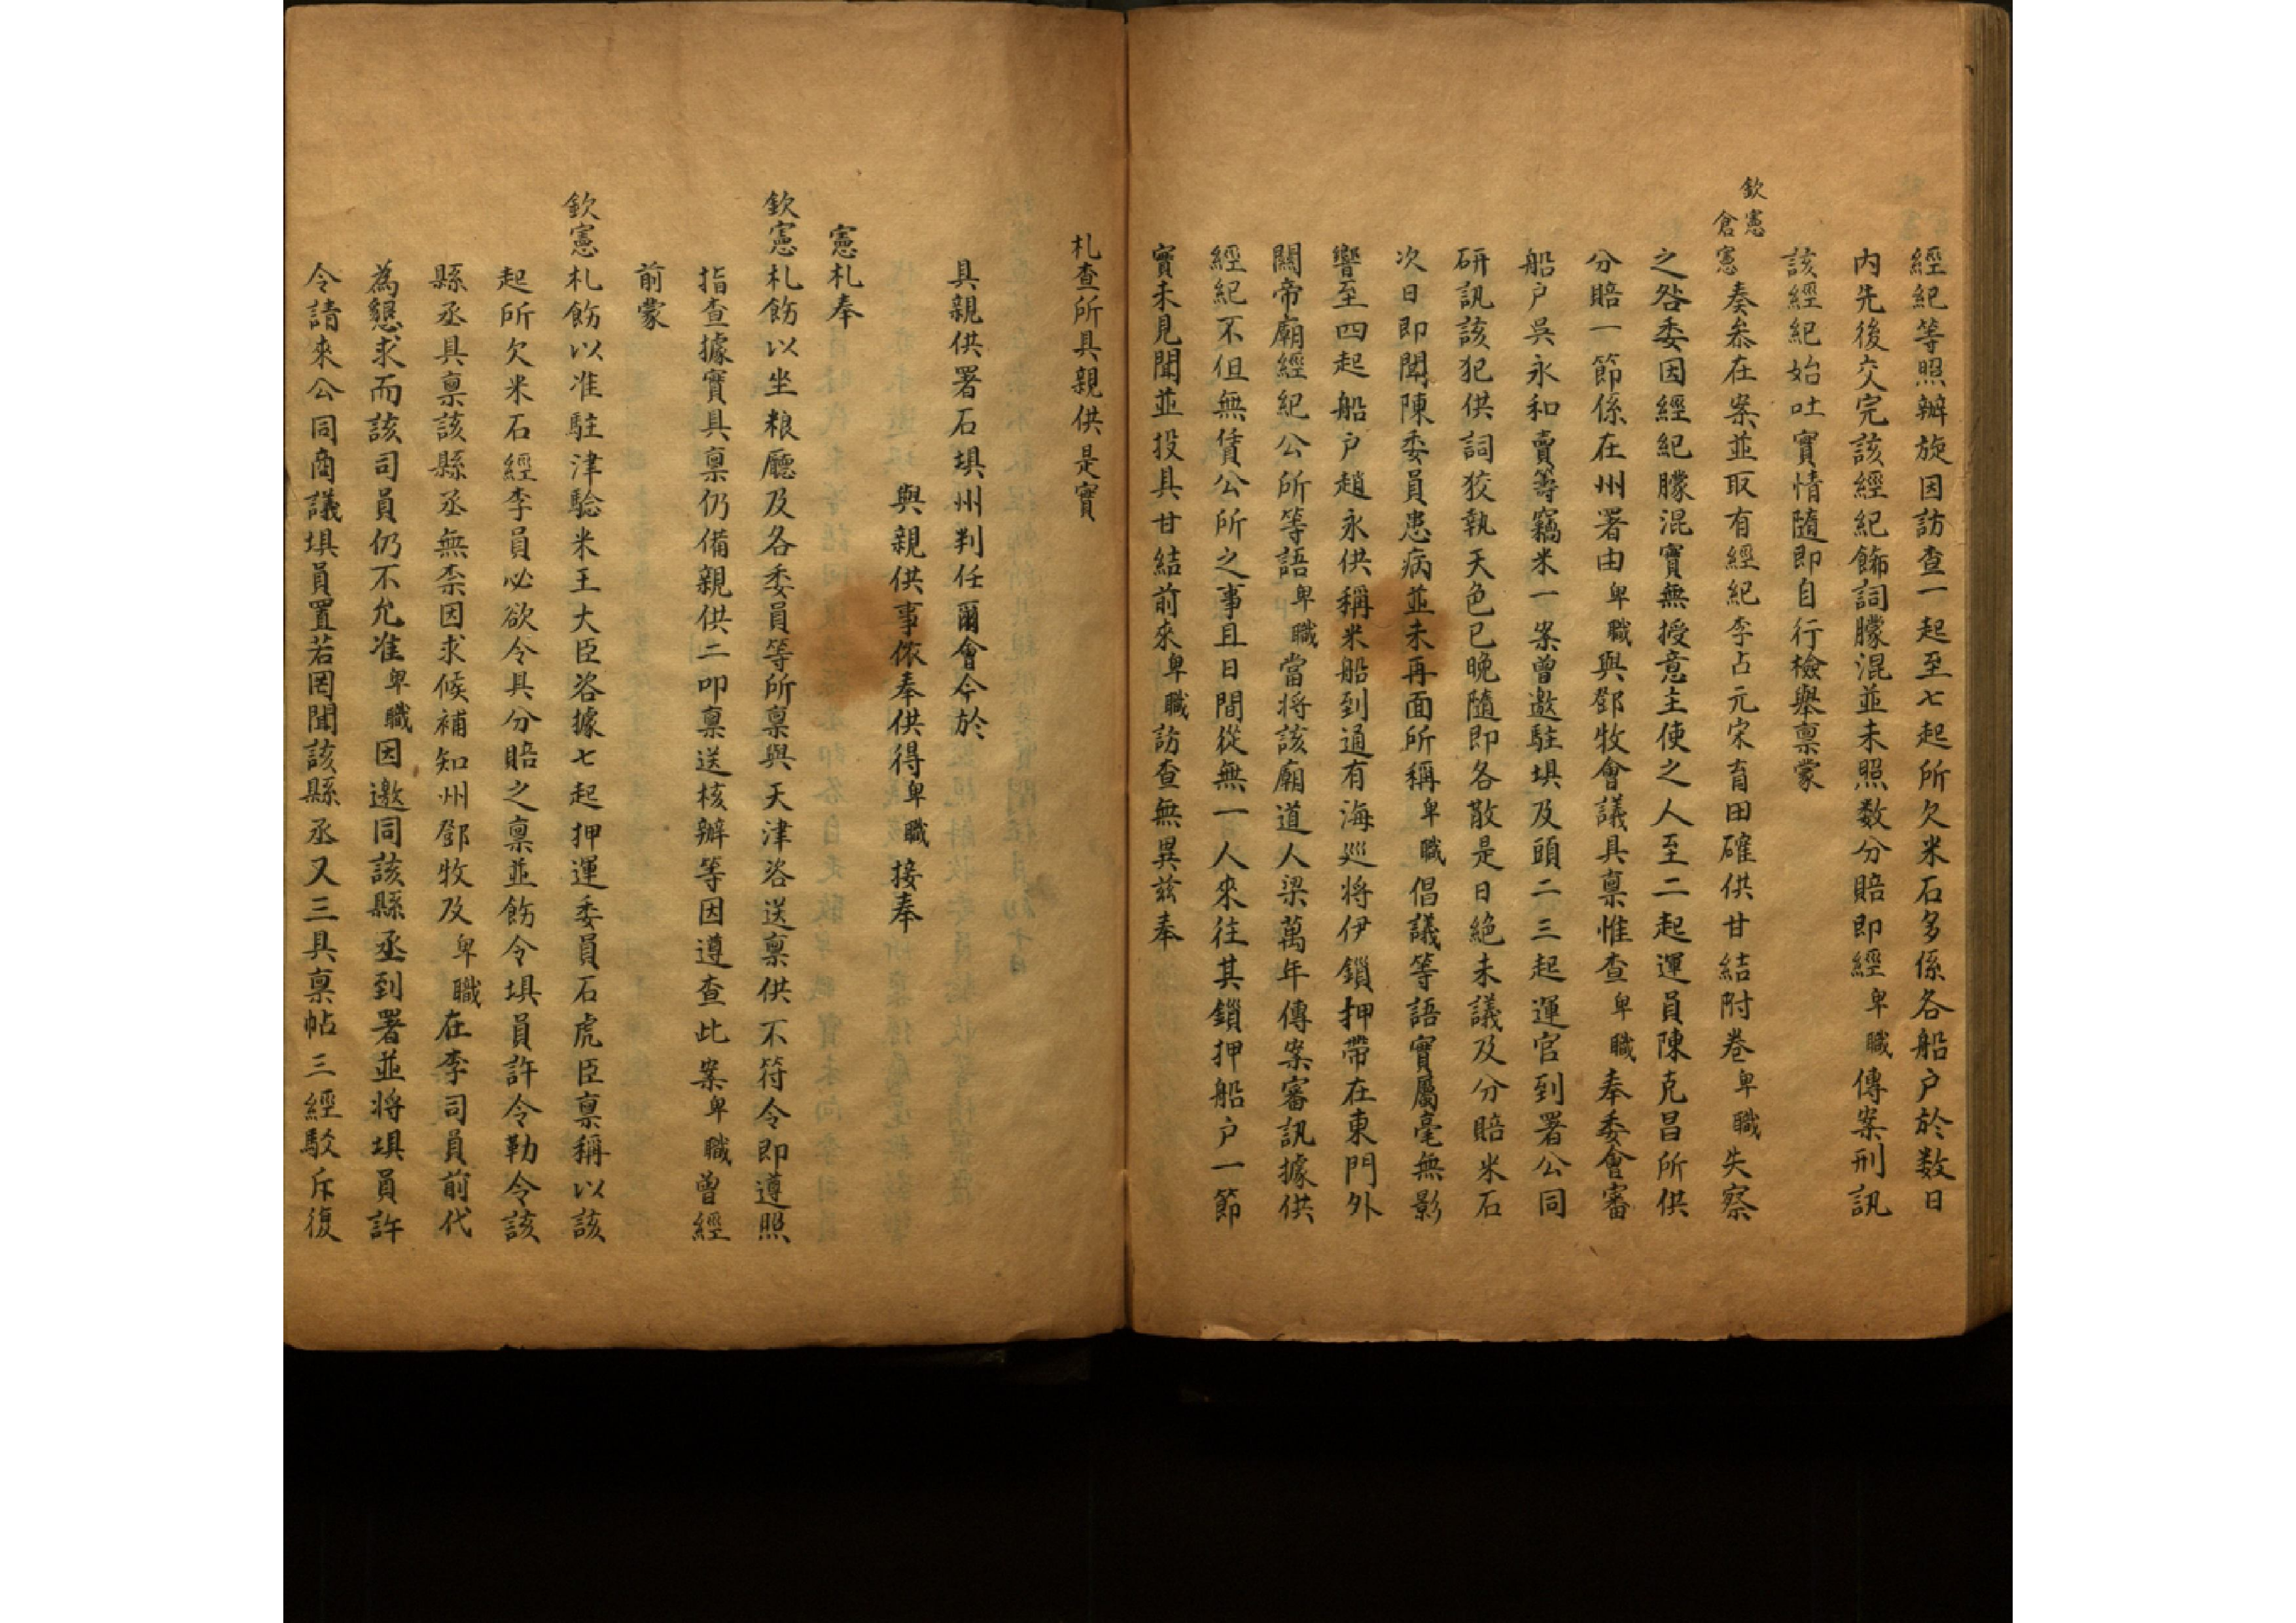 經紀等照辦旋因訪查一起至七起所欠米石多係各船户於数日
内先後交完該經紀飾詞朦混並未照数分賠即經卑職傳案刑訊
該經紀始吐實情隨即自行檢舉禀蒙
欽憲倉憲奏叅在案並取有經紀李占元宋育田確供甘結附卷卑職失察
之咎委因經紀朦混實無授意主使之人至二起運員陳克昌所供
分賠一節係在州署由卑職與鄧牧會議具禀惟查卑職奉委會審
船户吳永和賣籌竊米一案曾邀駐埧及頭二三起運官到署公同
研訊該犯供詞狡執天色已晚隨即各散是日絶未議及分賠米石
次日即聞陳委員患病並未再面所稱卑職倡議等語實屬毫無影
響至四起船户趙永供稱米船到通有海巡將伊鎖押帶在東門外
關帝廟經紀公所等語卑職當將該廟道人梁萬年傳案審訊據供
經紀不但無賃公所之事且日間從無一人來往其鎖押船户一節
實未見聞並投具甘結前來卑職訪查無異兹奉
札查所具親供是實
具親供署石埧州判任爾會今於
與親供事依奉供得卑職接奉
憲札奉
欽憲札飭以坐粮廳及各委員等所禀與天津咨送禀供不符令即遵照
指查據實具禀仍備親供二叩禀送核辦等因遵查此案卑職曾經
前蒙
欽憲札飭以准駐津驗米王大臣咨據七起押運委員石虎臣禀稱以該
起所欠米石經李員必欲令具分賠之禀並飭令埧員許令勒令該
縣丞具禀該縣丞無柰因求候補知州鄧牧及卑職在李司員前代
為懇求而該司員仍不允准卑職因邀同該縣丞到署並將埧員許
令請來公同商議埧員置若罔聞該縣丞又三具禀帖三經駁斥復